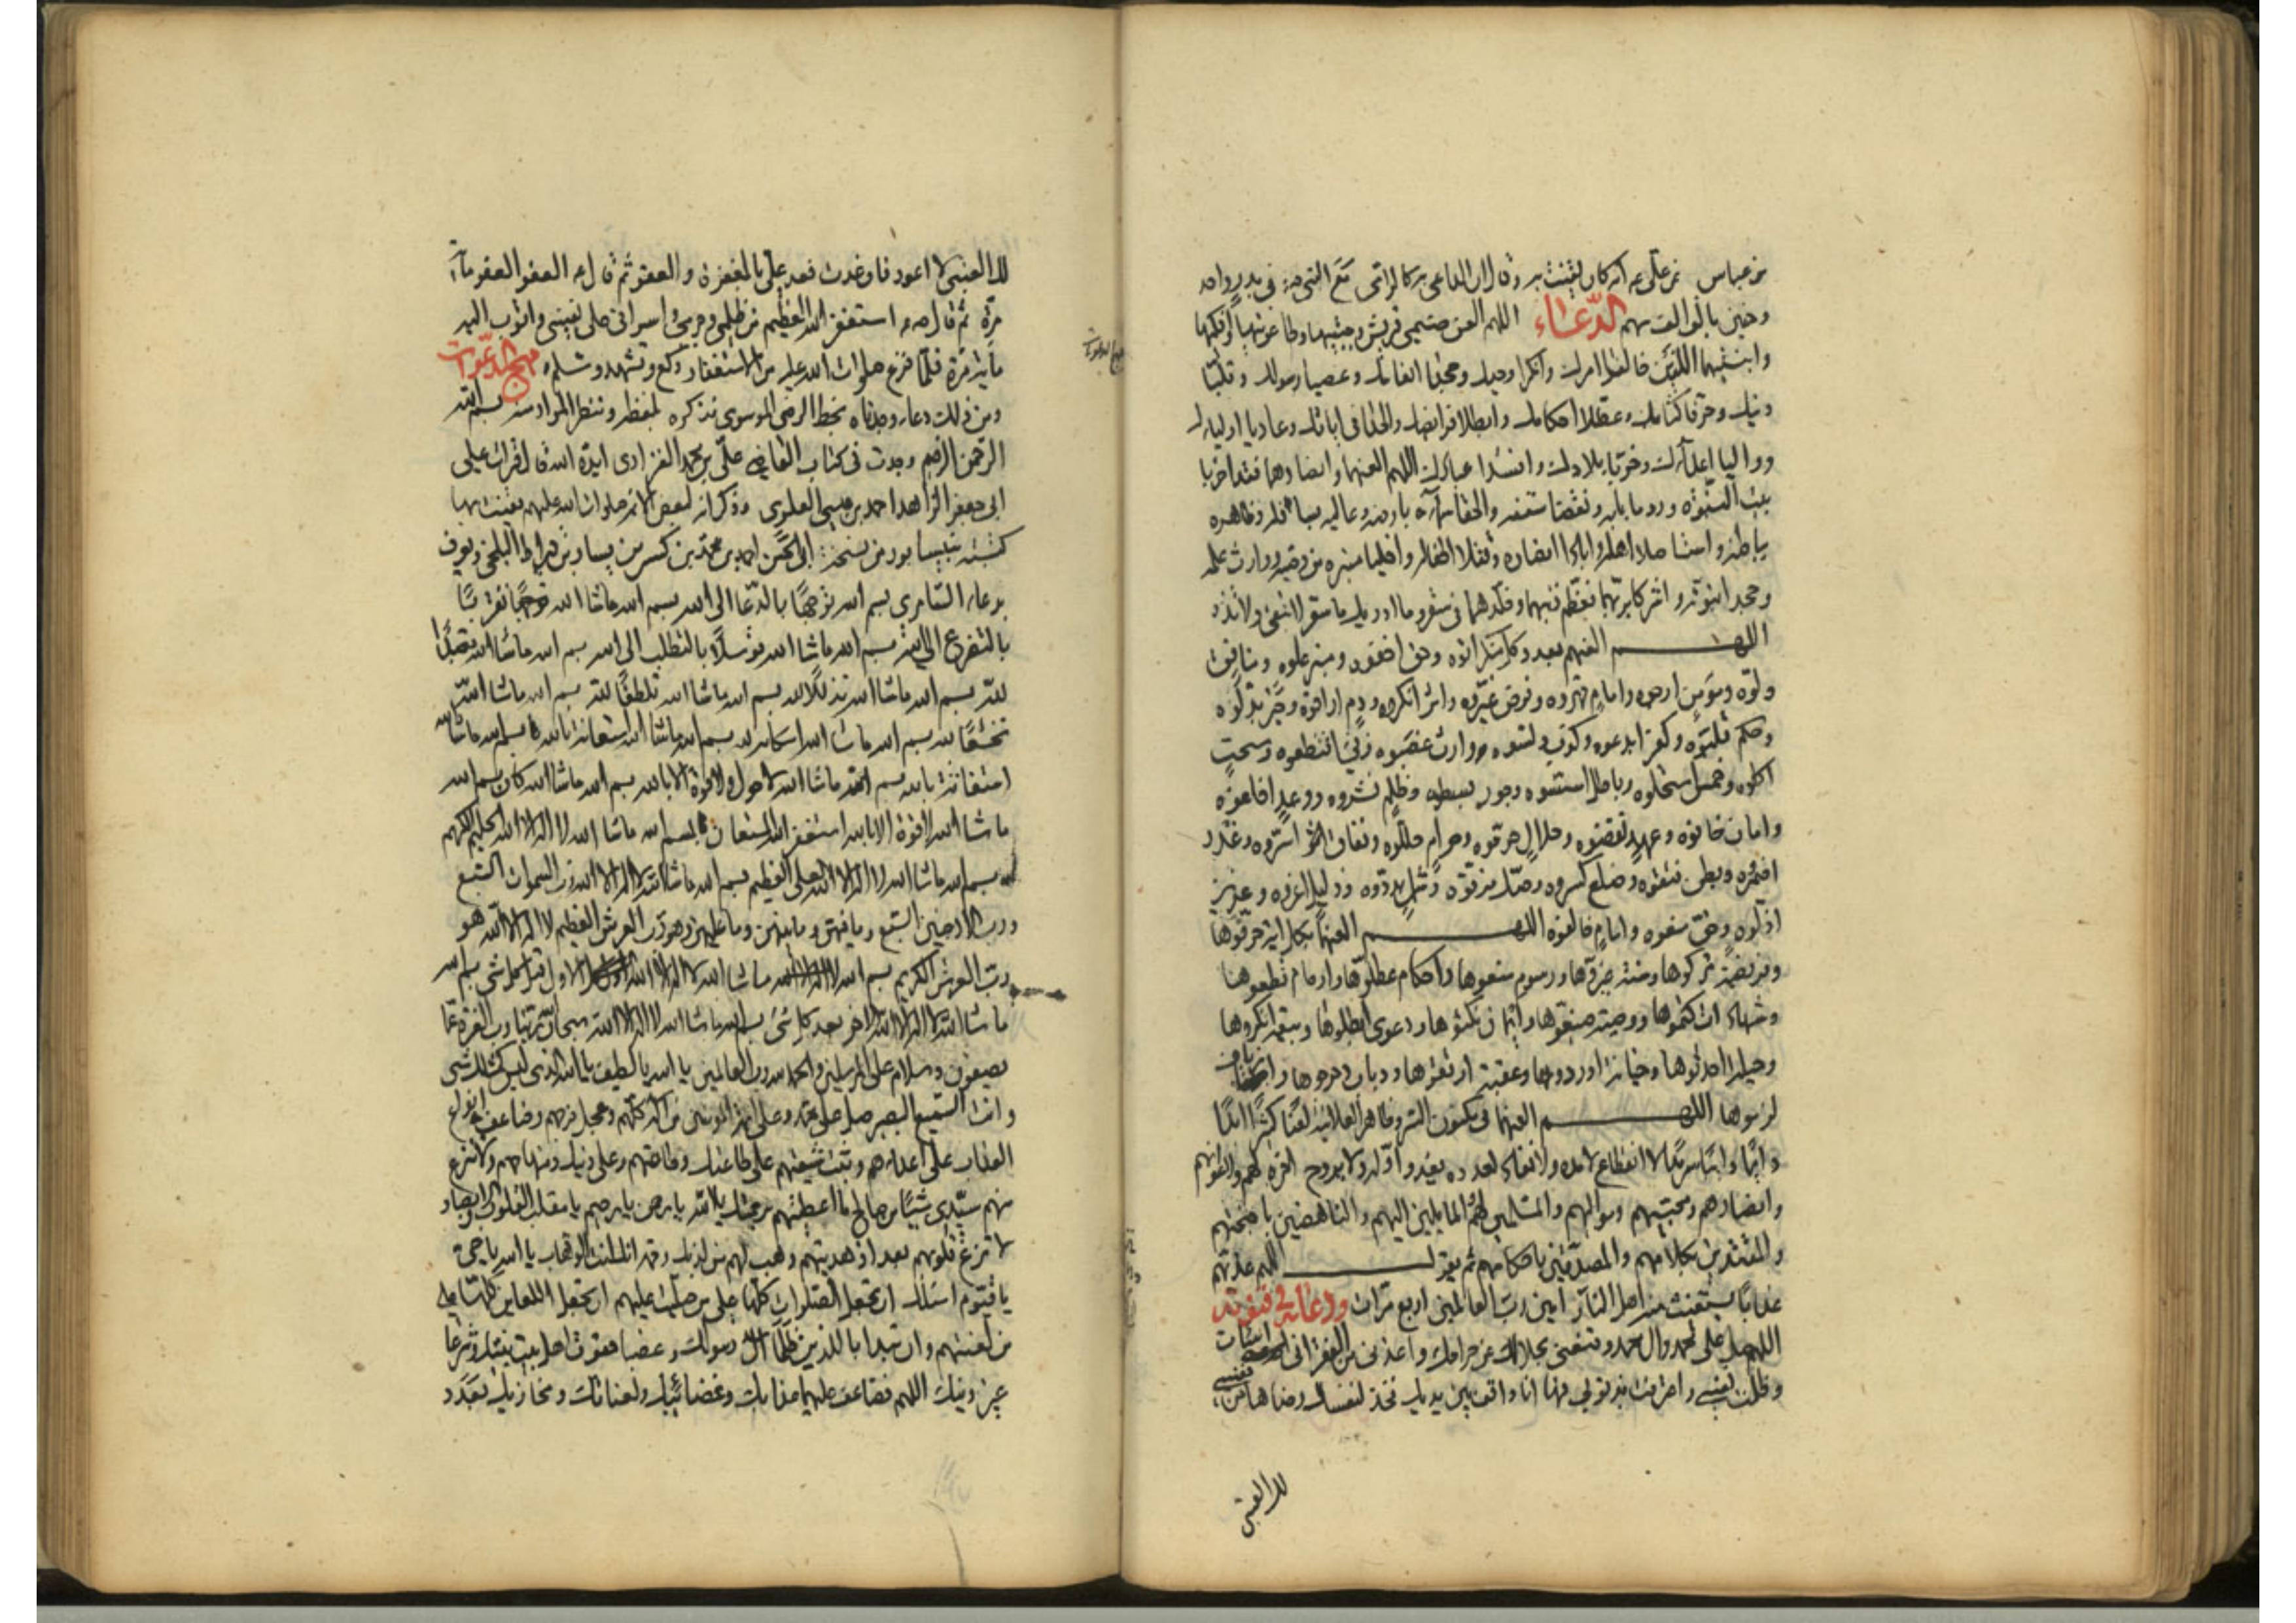 بن عباس عن علي عه انه كان يقنت به وقال ان الداعي به كالرامي مع النبي صه في بدر واحد
وحنين بالف الف سهم الدّعاء اللهم العن صنمي قريش وجبتيها وطاغوتيها وافكيها
وابنتيهما اللذين خالفا امرك وانكرا وحيك وجحدا انعامك وعصيا رسولك وقلبا
دينك وحرفا كتابك وعطلا احكامك وابطلا فرائضك والحدا في اياتك وعاديا اوليائك
وواليا اعدآئك وخربا بلادك وافسدا عبادك اللهم العنهما وانصارهما فقد اخربا
بيت النبوة وردما بابه ونقضا سقفه والحقا سمآءه بارضه وعاليه بسافله وظاهره
بباطنه واستاصلا اهله وابادا انصاره وقتلا اطفاله واخليا منبره من وصيه ووارث علمه
وجحدا نبوته واشركا بربهما فعظم ذنبهما وخلدهما في سقر وما ادريك ما سقر لا تبقي ولا تذر
اللهم العنهم بعدد كل منكر اتوه وحق اخفوه ومنبر علوه ومنافق
ولّوه ومؤمن ارجوه وامام قهروه وفرض غيّروه واثر انكروه ودم اراقوه وخبر بدلوه
وحكم قلبوه وكفر ابدعوه وكذب دلسوه وارث غصبوه وفيئ اقتطعوه وسحت
اكلوه وخمس استحلوه وباطل اسسوه وجور بسطوه وظلم نشروه ووعد اخلفوه
وامان خانوه وعهد نقضوه وحلال حرموه وحرام حللوه ونفاق اسرّوه وغدر
اضمروه وبطن فتقوه وضلع كسروه وصك مزقوه وشمل بددوه وذليل اعزوه وعزيز
اذلوه وحق منعوه وامام خالفوه اللهم العنهما بكل اية حرفوها
وفريضة تركوها وسنة غيروها ورسوم منعوها واحكام عطلوها وارحام قطعوها
وشهادات كتموها ووصية ضيعوها وايمان نكثوها ودعوى ابطلوها وبيعة انكروها
وحيلة احدثوها وخيانة اوردوها وعقبة ارتقوها ودباب دحرجوها وازياف
لزموها اللهم العنهما في مكنون السر وظاهر العلانية لعنا كثيرا ابدا
دائما دائبا سرمدا لا انقطاع لامده ولا نفاد لعدده يغدو اوله ولا يروح اخره لهم ولاعوانهم
وانصارهم ومحبيهم ومواليهم والمسلمين لهم والمايلين اليهم والناهضين باجنحتهم
والمقتدين بكلامهم والمصدقين باحكامهم ثم يقول اللهم عذبهم
عذابا يستغيث منه اهل النار آمين رب العالمين اربع مرات ودعائه في قنوته
اللهم صل على محمد وال محمد وقنعني بحلالك عن حرامك واعذني من الفقر اني اسات
وظلمت نفسي واعترفت بذنوبي فها انا واقف بين يديك فخذ لنفسك رضاها من نفسي
لك العتبى
لك العتبى لا اعود فان عدت فعد علي بالمغفرة والعفو ثم قال عه العفو العفو مائة
مرة ثم قال صه استغفر الله العظيم من ظلمي وجرمي واسرافي على نفسي واتوب اليه
مأية مرة فلما فرغ صلوات الله عليه من الاستغفار ركع وتشهد وسلم مهج الدعوات
ومن ذلك دعاء وجدناه بخط الرضي الموسوي نذكره بلفظه وننظر المراد منه بسم الله
الرحمن الرحيم وجدت في كتاب القاضي علي بن محمد الفزاري ايده الله قال قرات على
ابي جعفر الزاهد احمد بن عيسى العلوي وذكر انه لبعض الائمة صلوات الله عليهم يقنت بها
كتبته بنيسابور من نسخة ابي الحسن احمد بن محمد بن كسرى بن يسار بن قيراط البلخي ويعرف
بدعاء السامري بسم الله توجها بالدعا الى الله بسم الله ماشا الله تقربا
بالتضرع الى الله بسم الله ماشا الله توسلا بالتطلب الى الله بسم الله ماشا الله تعبدا
لله بسم الله ماشا الله تذللا لله بسم الله ماشا الله تلطفا لله بسم الله ماشا الله
تخشعا لله بسم الله ماشا الله استكانة لله بسم الله ماشا الله استعانة بالله بسم الله ماشا الله
استغاثة بالله بسم الله ماشا الله لا حول ولا قوة الا بالله بسم الله ماشا الله كان بسم الله
ماشا الله لا قوة الا بالله استغفر الله المستعان بسم الله ماشا الله لا اله الا الله الحليم الكريم
بسم الله ماشا الله لا اله الا الله العلي العظيم بسم الله ماشا الله لا اله الا الله رب السموات السبع
ورب الارضين السبع وما فيهن وما بينهن وما عليهن وهو رب العرش العظيم لا اله الا الله هو
رب العرش الكريم بسم الله ماشا الله لا اله الا الله الاول قبل كل شي بسم الله
ماشا الله لا اله الا الله الاخر بعد كل شئ بسم الله ماشا الله لا اله الا الله سبحان ربنا رب العزة عما
يصفون وسلام على المرسلين والحمد لله رب العالمين يا الله يا لطيف يا الله الذي ليس كمثله شي
وانت السميع البصير صل على محمد وعلى ائمة المومنين من اله كلهم وعجل فرجهم وضاعف انواع
العذاب على اعدائهم وثبت شيعتهم على طاعتك وطاعتهم وعلى دينك ومنهاجهم ولا تنزع
منهم سيدي شيئا من صالح ما اعطيتهم برحمتك يا الله يا رحمن يا رحيم يا مقلب القلوب والابصار
لا تزغ قلوبهم بعد اذ هديتهم وهب لهم من لدنك رحمة انك انت الوهاب يا الله يا حي
يا قيوم اسئلك ان تجعل الصلوات كلها على من صليت عليهم ان تجعل اللعاين كلها على
من لعنتهم وان تبدا بالذين ظلما ال رسولك وغصبا حقوق اهل بيت نبيك وشرعا
غير دينك اللهم فضاعف عليهما عذابك وغضائبك ولعناتك ومخازيك بعدد